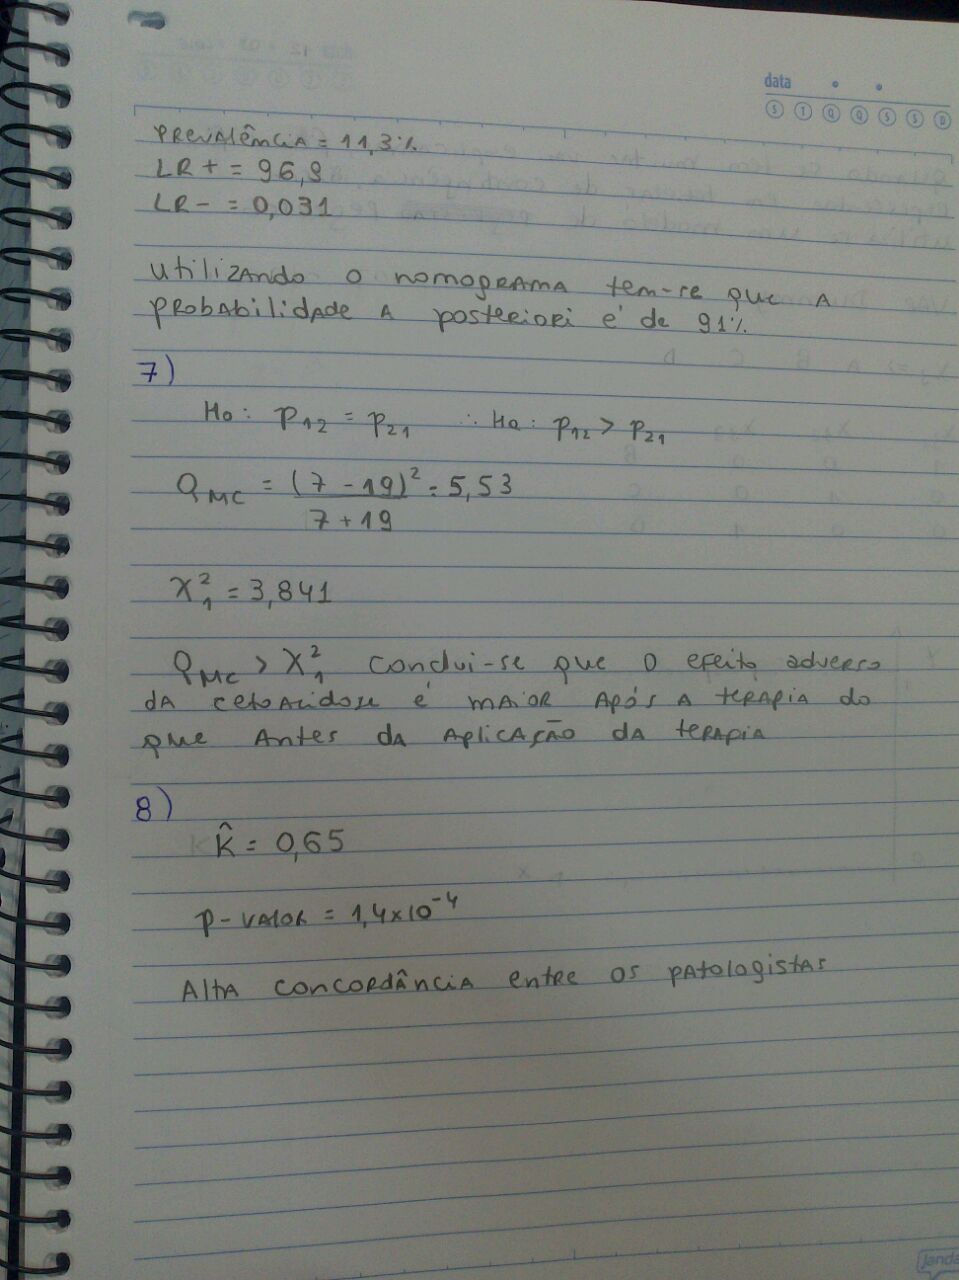 data
S T Q Q S S D
PREVALÊNCIA = 11,3%
LR + = 96,9
LR - = 0,031
Utilizando o nomograma tem-se que a
probabilidade a posteriori é de 91%
7)
Ho: p12 = p21 ∴ Ha: p12 > p21
QMC = (7 - 19)² = 5,53
7 + 19
X²1 = 3,841
QMC > X²1 conclui-se que o efeito adverso
da cetoacidose é maior após a terapia do
que antes da aplicação da terapia
8)
K̂ = 0,65
p-valor = 1,4x10⁻⁴
Alta concordância entre os patologistas